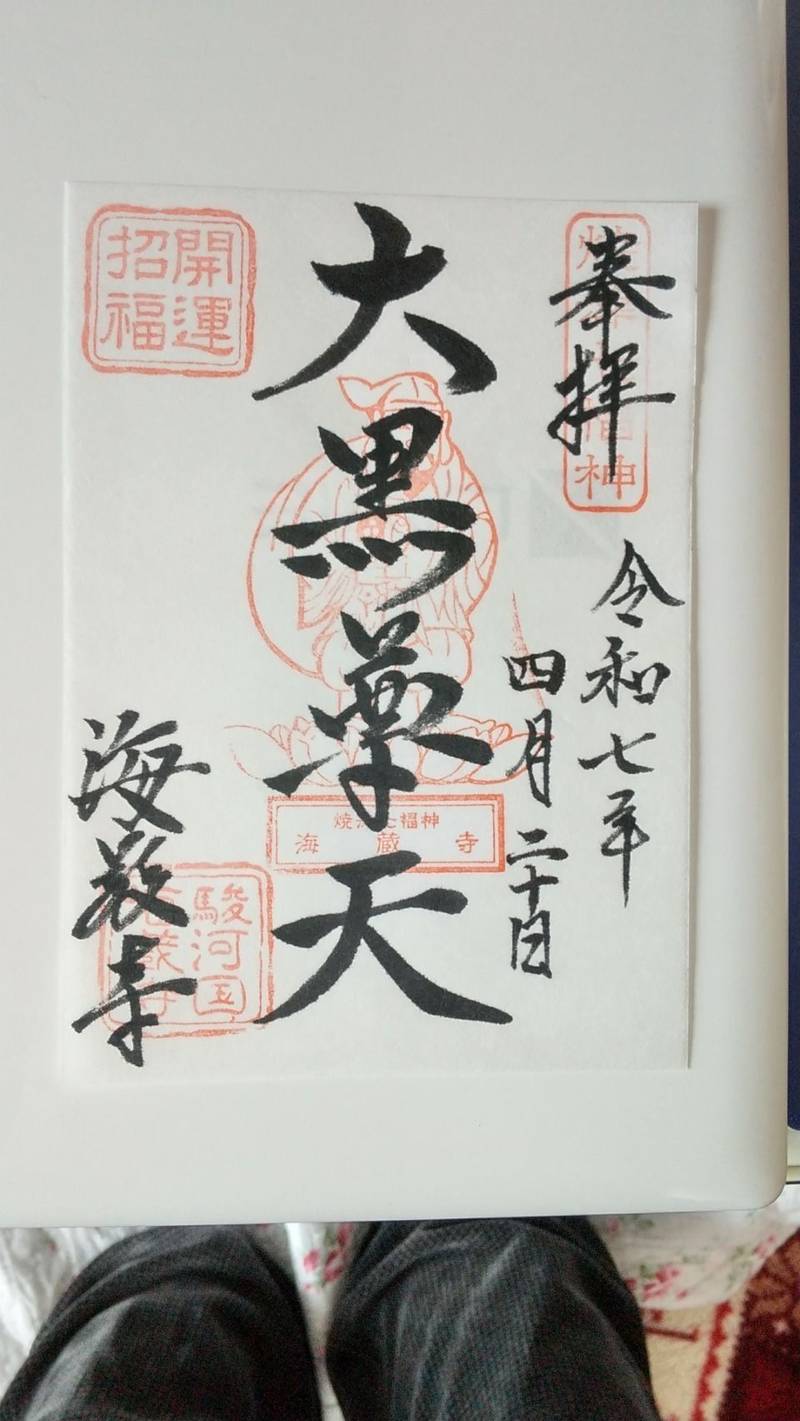 奉拝
令和七年
四月二十日
大黒薬天
海蔵寺
開運
招福
焼津七福神
海蔵寺
駿河国